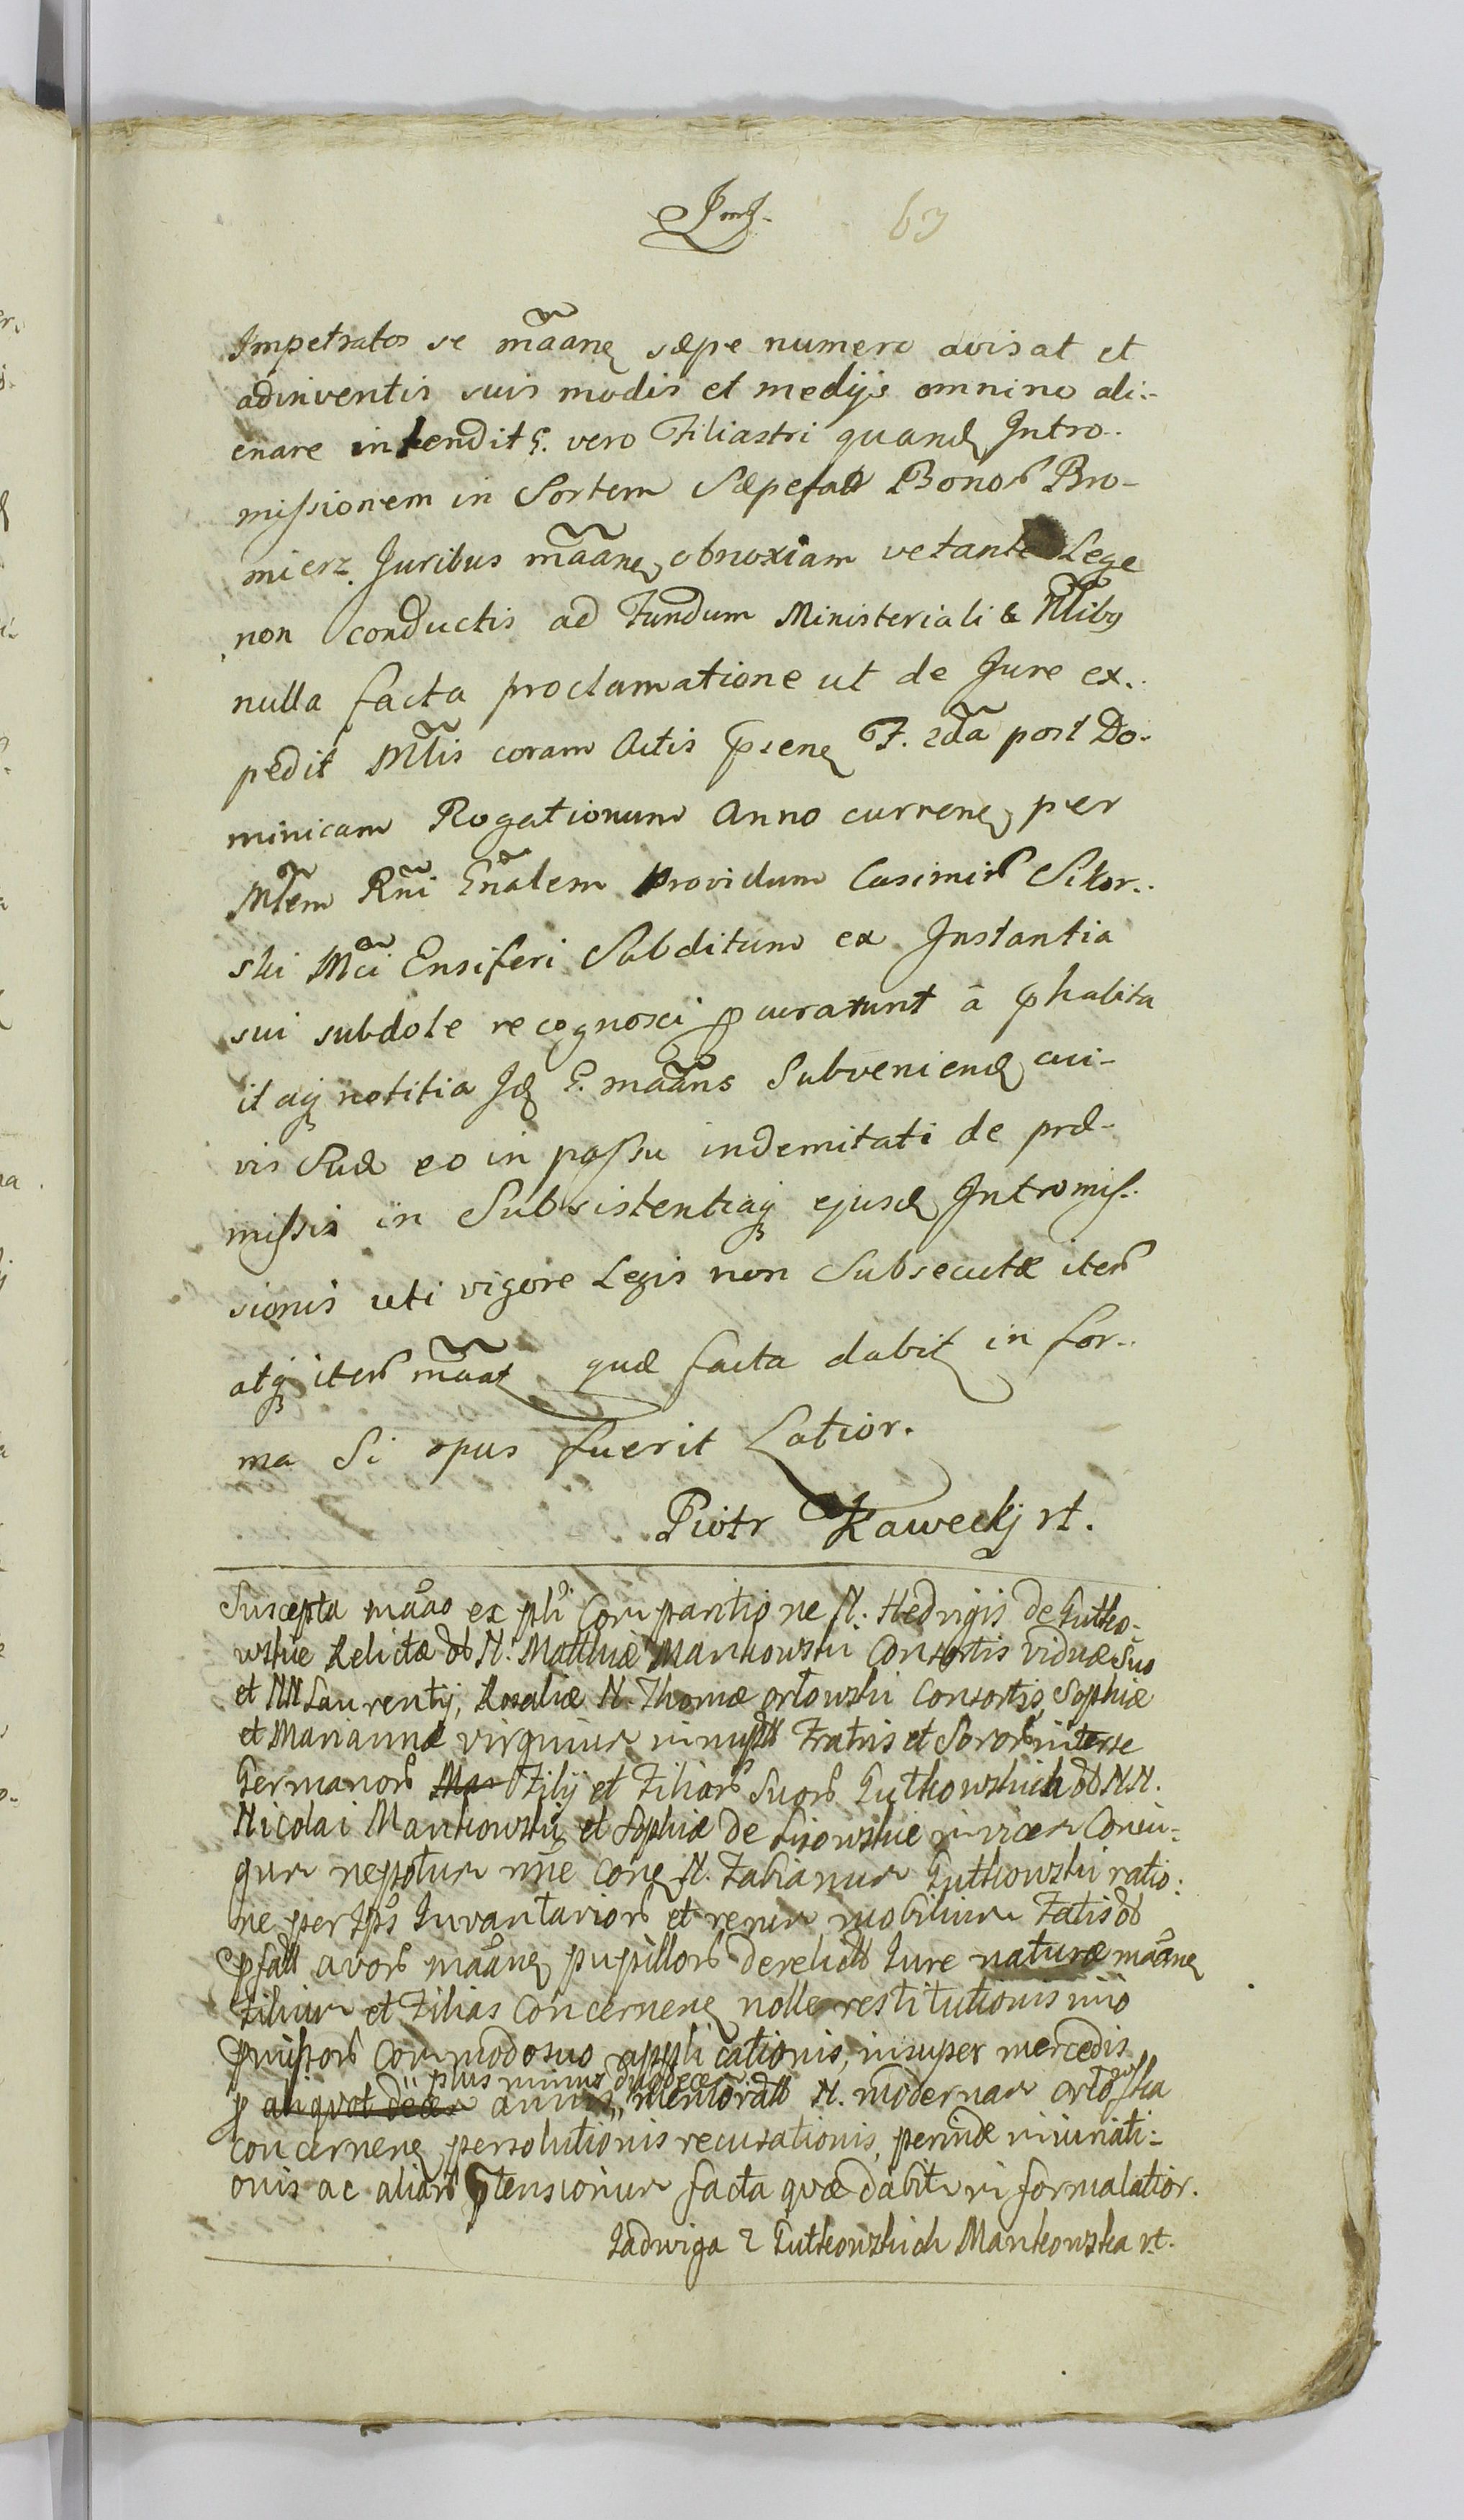 Jmj. 63
Impetratos se mãane sæpe numero avisat et
adinventis suis modis et medijs omnino ali-
enare intendit G. vero Filiastri quand Intro-
missionem in Sortem Sæpefatt Bonor Bro-
mierz Juribus mãane obnoxiam vetante Lege
non conductis ad Fundum Ministeriali & Nlibus
nulla facta proclamatione ut de Jure ex-
pedit Mtlis coram Actis psene F. 2da post Do-
minicam Rogationum Anno currene per
Mtlem Rni Gnalem Providum Casimir Sikor-
ski Mci Ensiferi Subditum ex Instantia
sui subdole recognosci p curarunt â p habita
itaq notitia Id G. mãans Subveniend cui-
vis Suæ eo in passu indemitati de præ-
missis in Subsistentiaq ejusd Intromis-
sionis uti vigore Legis non Subsecutæ iter
atq iter mãat quæ facta dabit in for-
ma Si opus fuerit Latior.
Piotr Kaweckj rt.
Suscepta mãao ex pli Comparitione N. Hedvigis de Gutko-
wskie Relictæ ol N. Matthiæ Mankowski Consortis viduæ Suo
et NN Laurentij, Rosaliæ N. Thomæ Orłowski Consortis, Sophiæ
et Mariannæ virginum innuptt Fratris et Soror interse
Germanor Man Filij et Filiar Suor Gutkowskich ol NN.
Nicolai Mankowski et Sophiæ de Lisowskie invicem Coniu-
gum nepotum nne Cone N. Fabianum Gutkowski ratio-
ne per Ips Invantarior et rerum mobilium Fatis ol
pfatt avor mãane pupillor derelictt Iure naturæ mãane
Filium et Filias Concernene nolle restitutionis imo
pmissor Commodo suo applicationis, insuper mercedis
"plus minus duodecem
p aliquot decem annis" memoratt N. modernam Orłowska
concernene persolutionis recusationis, perinde iniuriati-
onis ac aliar ptensionum facta quæ dabit in forma latior.
Jadwiga z Gutkowskich Mankowska rt.